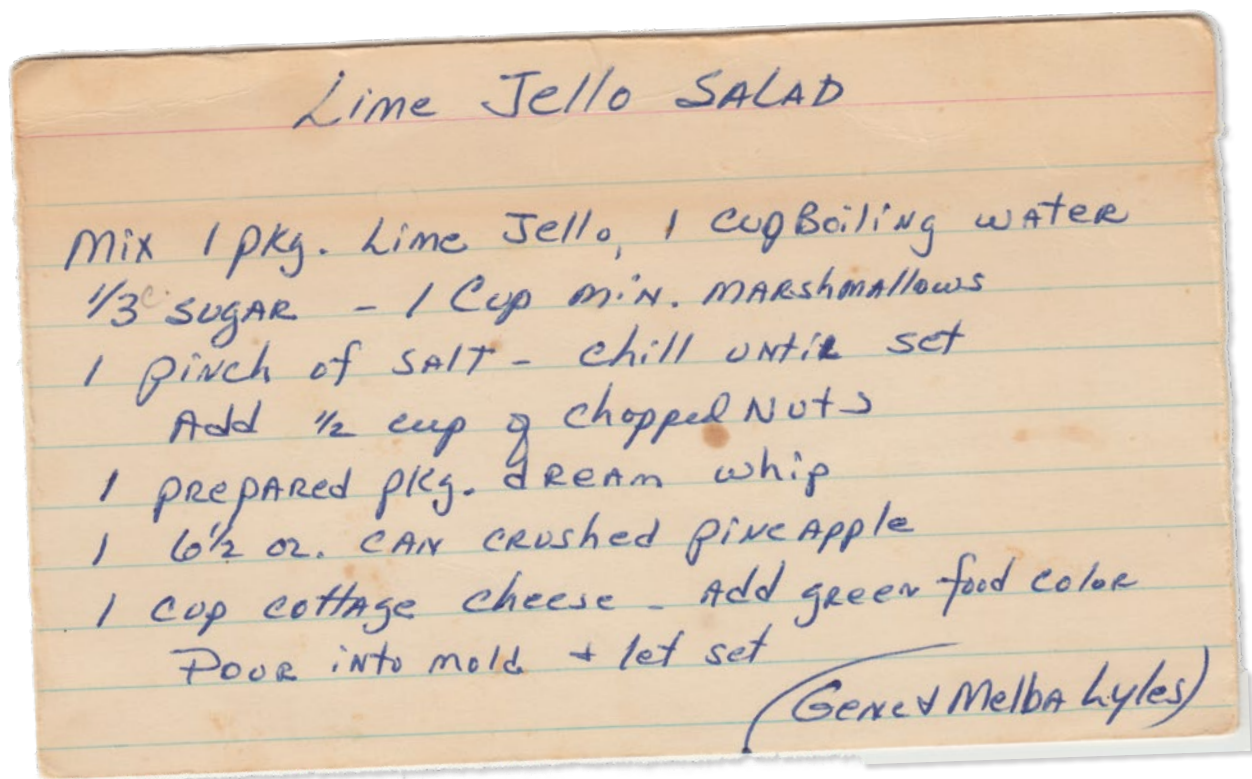 Lime Jello SALAD
Mix 1 pkg. Lime Jello, 1 cup Boiling water
1/3 c. sugar - 1 Cup min. marshmallows
1 pinch of salt - chill until set
Add 1/2 cup of chopped Nuts
1 prepared pkg. dream whip
1 6 1/2 oz. can crushed pineapple
1 cup cottage cheese - Add green food color
Pour into mold + let set
(Gene & Melba Lyles)